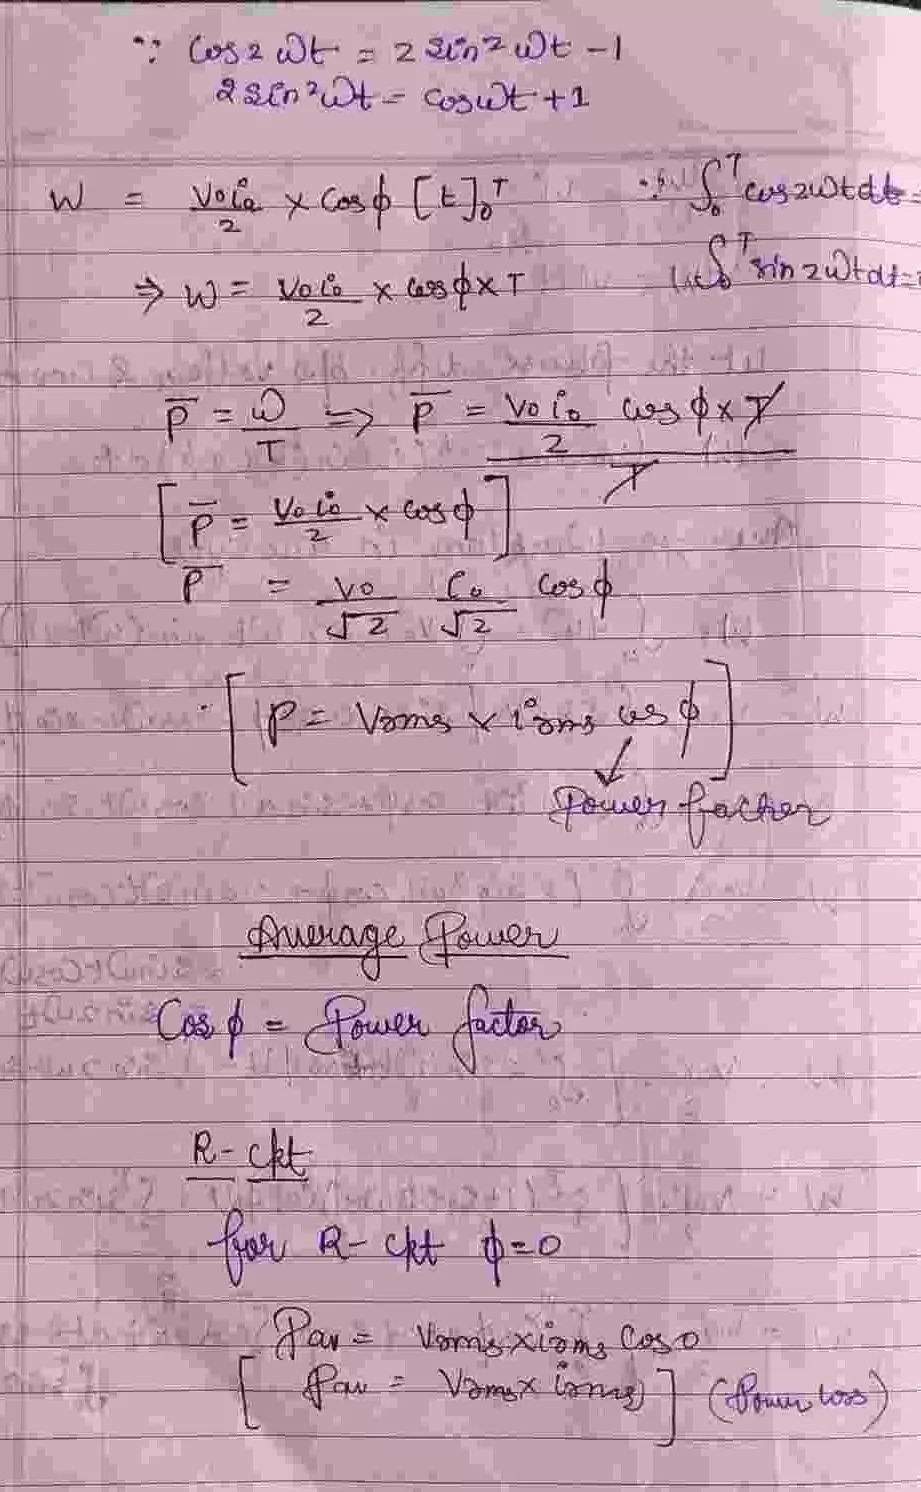 ∵ Cos2ωt = 2 Sin²ωt - 1
2 Sin²ωt = cosωt + 1
W = V₀i₀/2 × Cosφ [t]₀ᵀ ∵ ∫₀ᵀ cos2ωtdt =
⇒ W = V₀i₀/2 × cosφ × T ∫₀ᵀ sin2ωtdt =
P̅ = ω/T ⇒ P̅ = (V₀i₀/2 cosφ × T)/T
[P̅ = V₀i₀/2 × cosφ]
P̅ = V₀/√2 i₀/√2 cosφ
[P = Vrms × irms cosφ]
↓
Power factor
Average Power
Cosφ = Power factor
R- ckt
for R- ckt φ=0
Pav = Vrms × irms Cos0
[Pav = Vrms × irms] (Power loss)